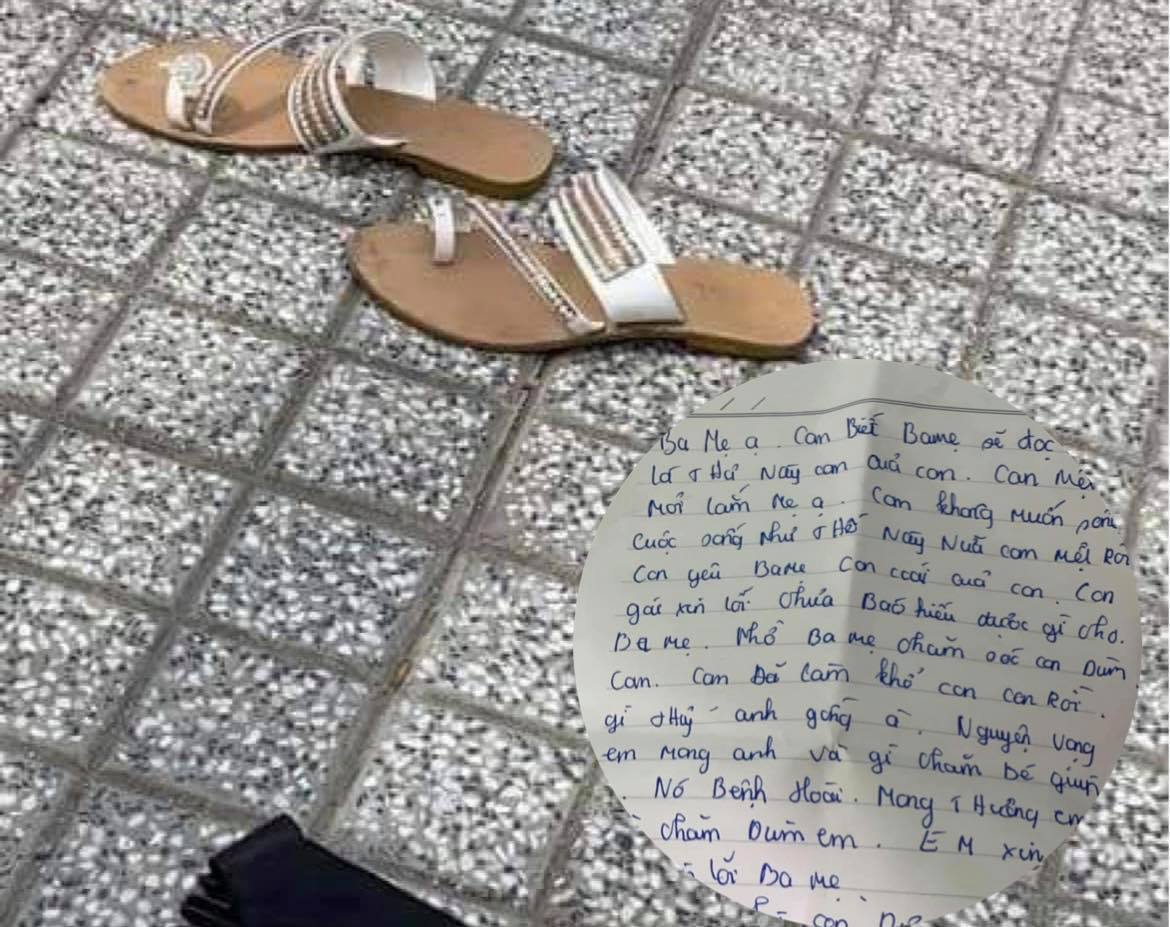 Ba Mẹ ạ. Con Biết Bamẹ sẽ đọc
lá Thư Này con của con. Con Mệt
Mỏi lắm Mẹ ạ. Con không Muốn
cuộc sống Như Thế Này Nữa con mệt Rồi
Con yêu BaMẹ Con của con. Con
gái xin lỗi. Chưa Báo hiếu được gì cho.
Ba Mẹ. Nhờ Ba mẹ chăm sóc con Dùm
Con. Con Đã làm khổ con con Rồi.
gì Thuỷ anh à. Nguyện vọng
em Mong anh và gì chăm bé giùm
Nó Bệnh Hoài. Mong Thương em
chăm Dùm em. EM xin
lỗi Ba mẹ
con